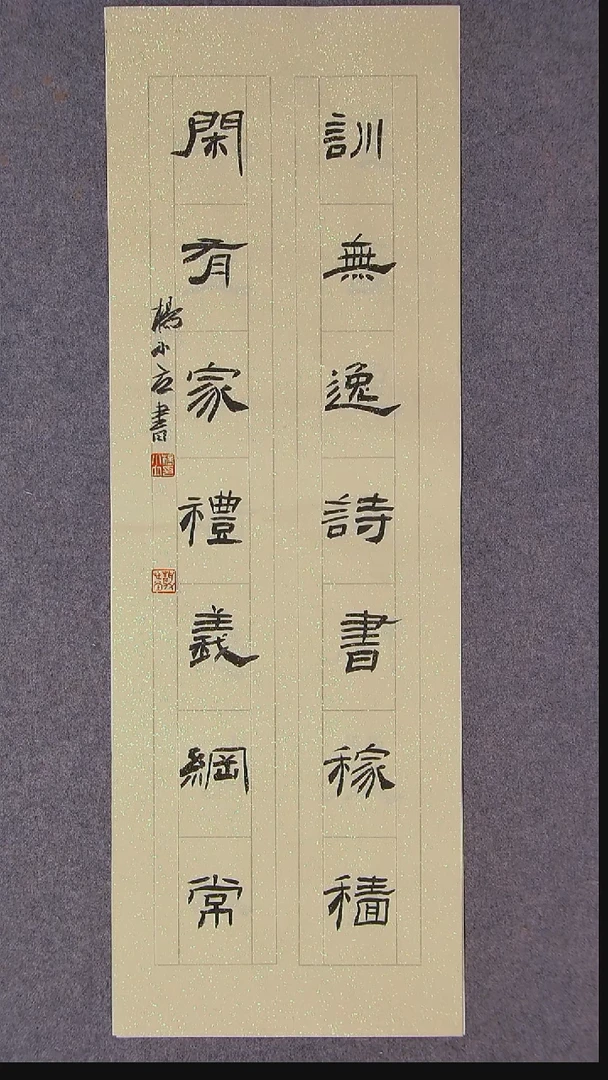 訓無逸詩書稼穡
閑有家禮義綱常
楊小应書